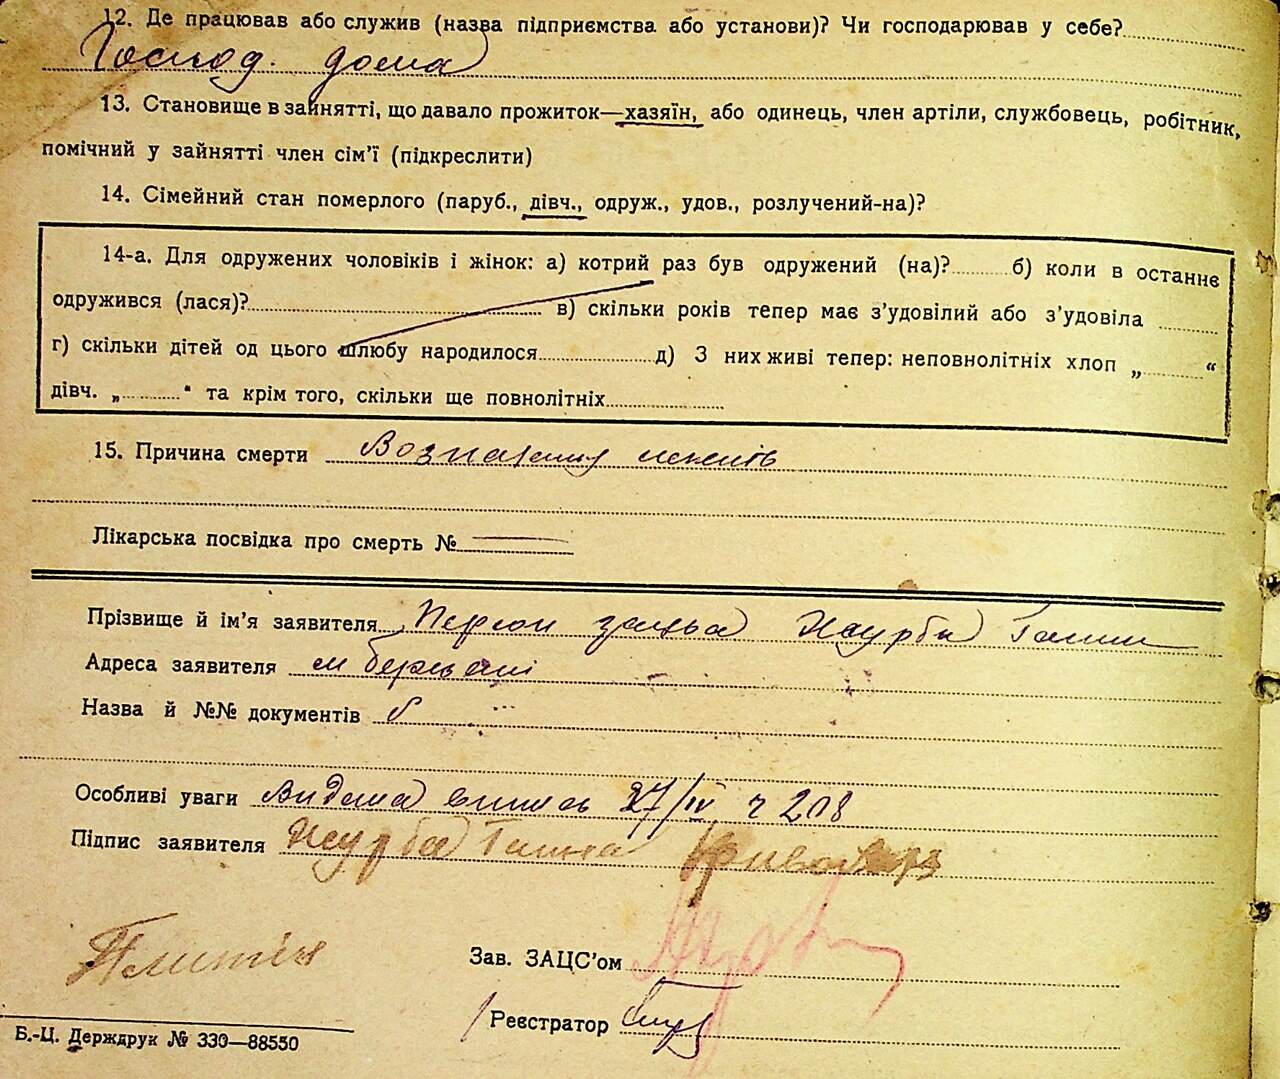 12. Де працював або служив (назва підприємства або установи)? Чи господарював у себе?
Господ. дома
13. Становище в зайнятті, що давало прожиток—хазяїн, або одинець, член артіли, службовець, робітник,
помічний у зайнятті член сім'ї (підкреслити)
14. Сімейний стан померлого (паруб., дівч., одруж., удов., розлучений-на)?
14-а. Для одружених чоловіків і жінок: а) котрий раз був одружений (на)? б) коли в останнє
одружився (лася)? в) скільки років тепер має з'удовілий або з'удовіла
г) скільки дітей од цього шлюбу народилося д) З них живі тепер: неповнолітніх хлоп „ “
дівч. „ “ та крім того, скільки ще повнолітніх
15. Причина смерти
Лікарська посвідка про смерть № —
Прізвище й ім'я заявителя Ганни
Адреса заявителя м
Назва й №№ документів
Особливі уваги Видана 27/IV ч 208
Підпис заявителя Ганна
Зав. ЗАЦС'ом
Реєстратор
Б.-Ц. Держдрук № 330—88550